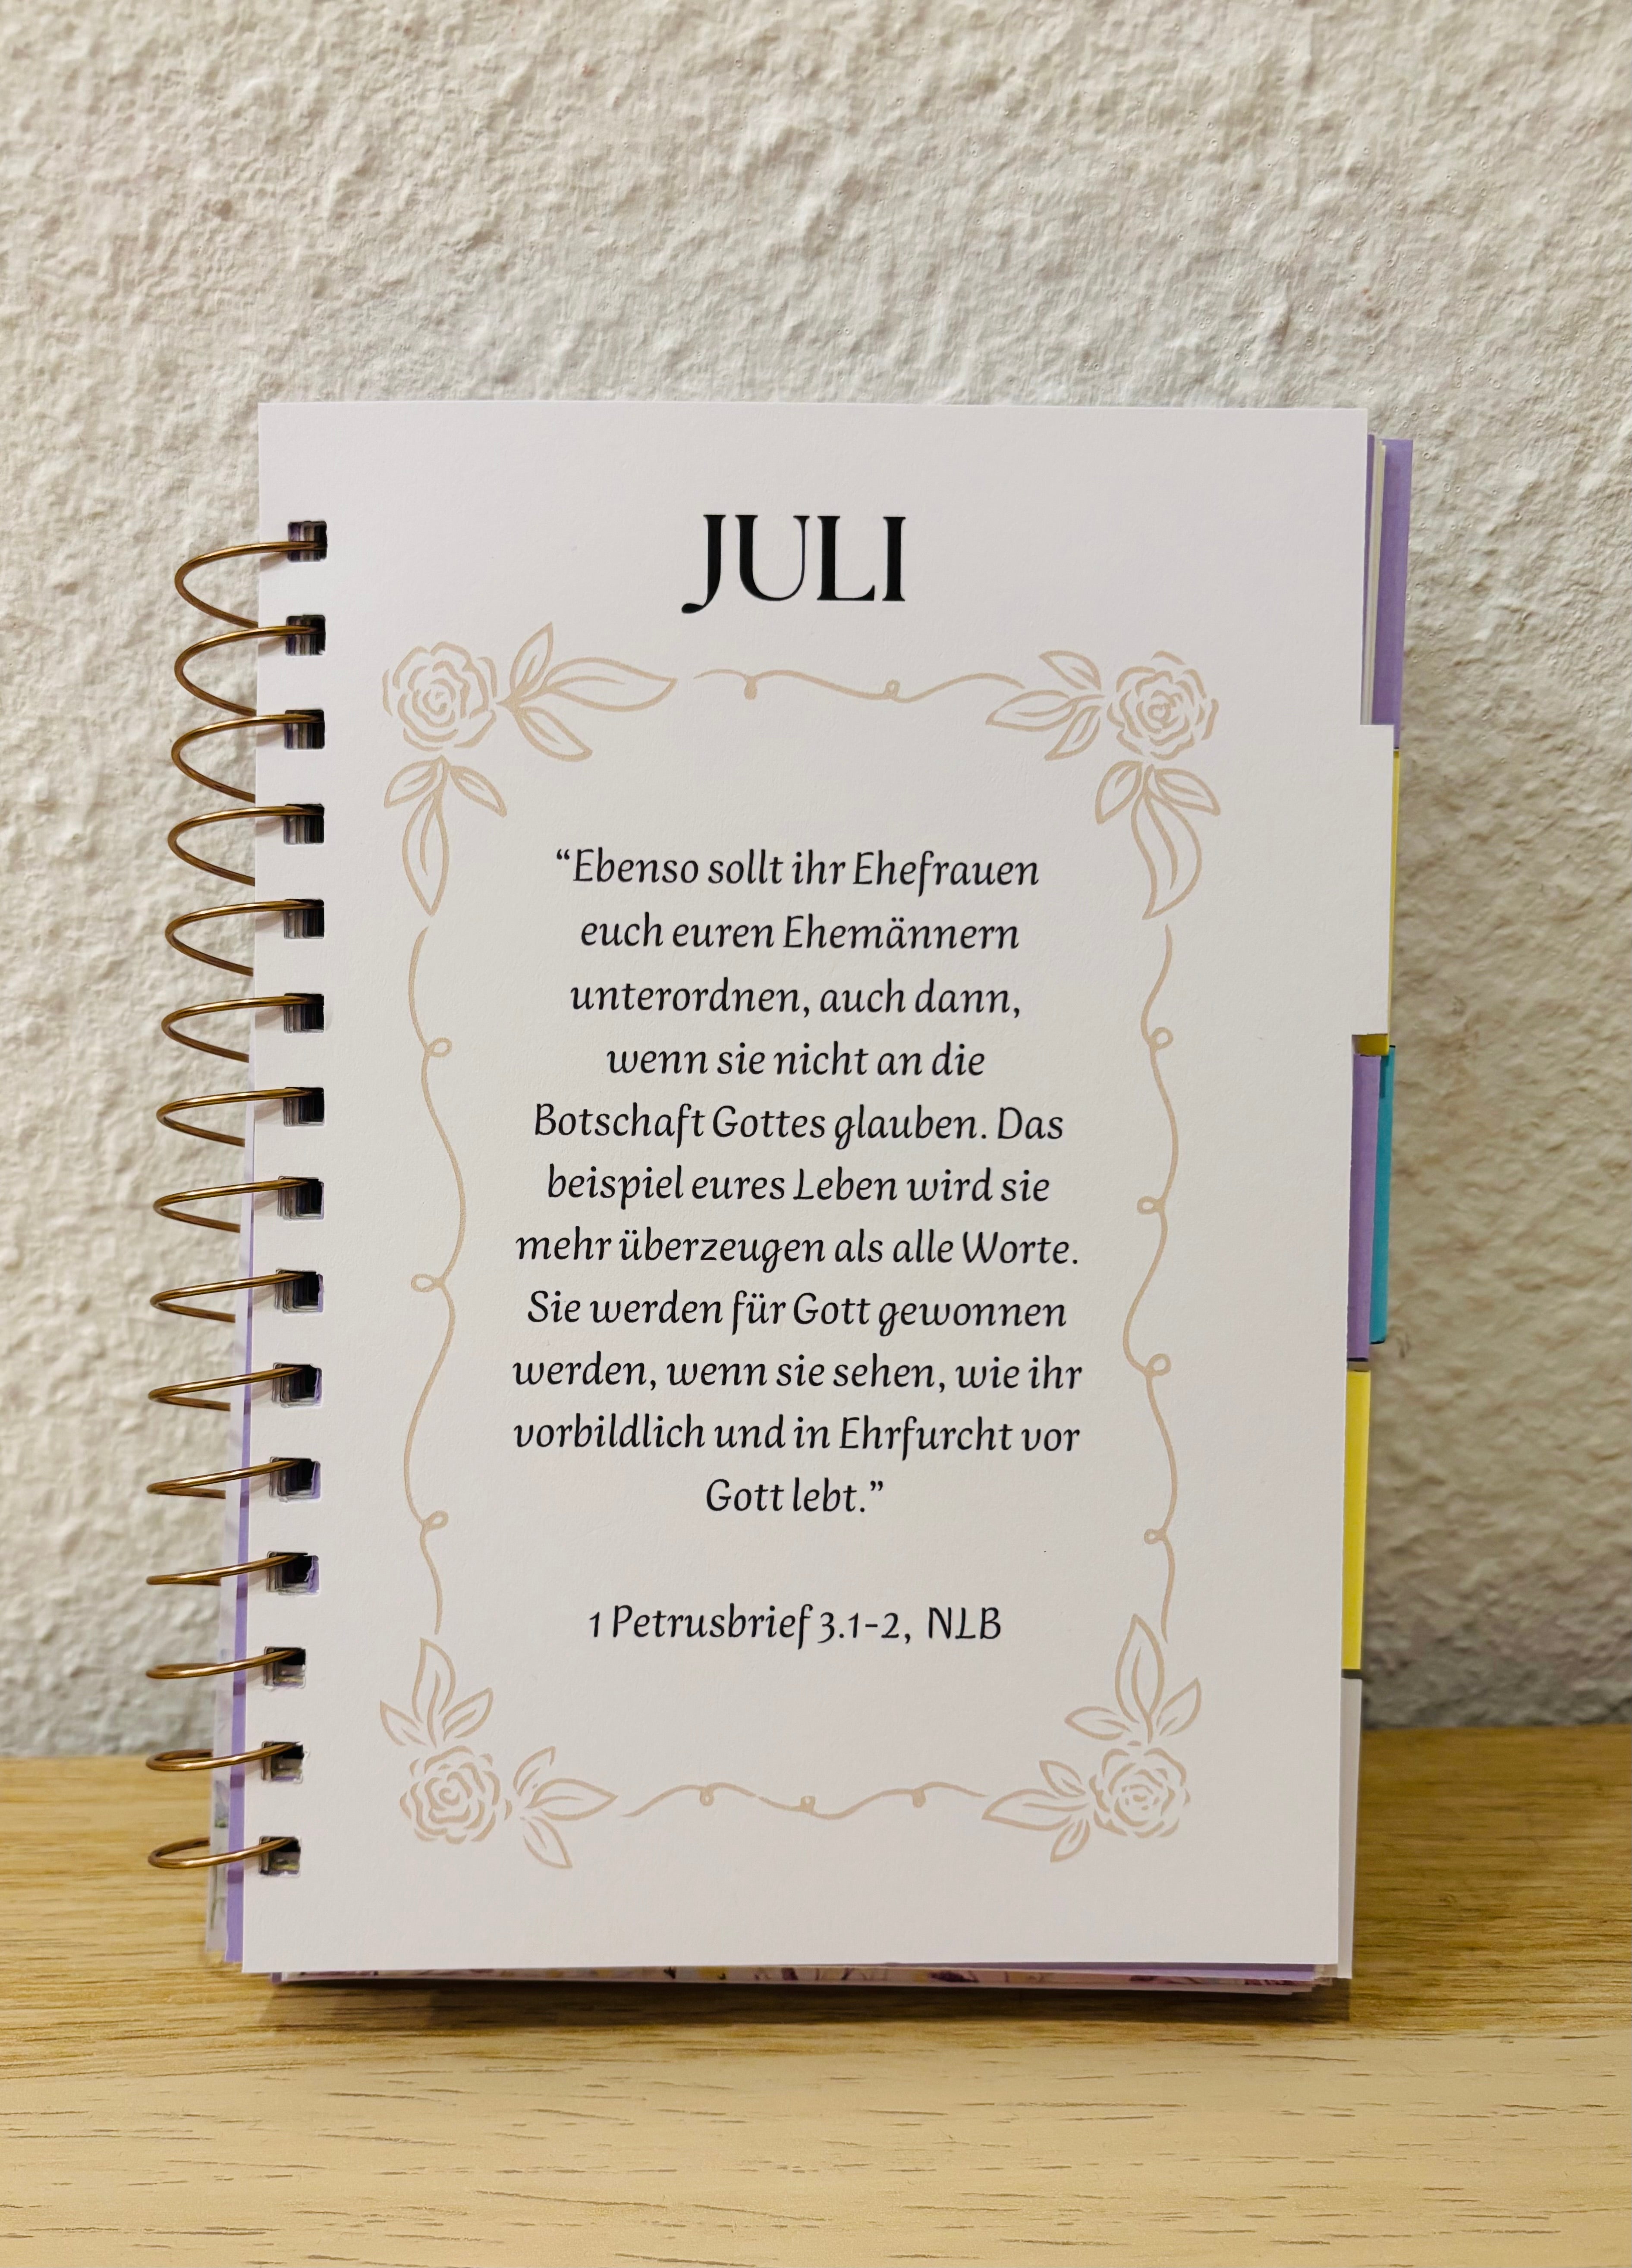 JULI
“Ebenso sollt ihr Ehefrauen
euch euren Ehemännern
unterordnen, auch dann,
wenn sie nicht an die
Botschaft Gottes glauben. Das
beispiel eures Leben wird sie
mehr überzeugen als alle Worte.
Sie werden für Gott gewonnen
werden, wenn sie sehen, wie ihr
vorbildlich und in Ehrfurcht vor
Gott lebt.”
1 Petrusbrief 3.1-2, NLB